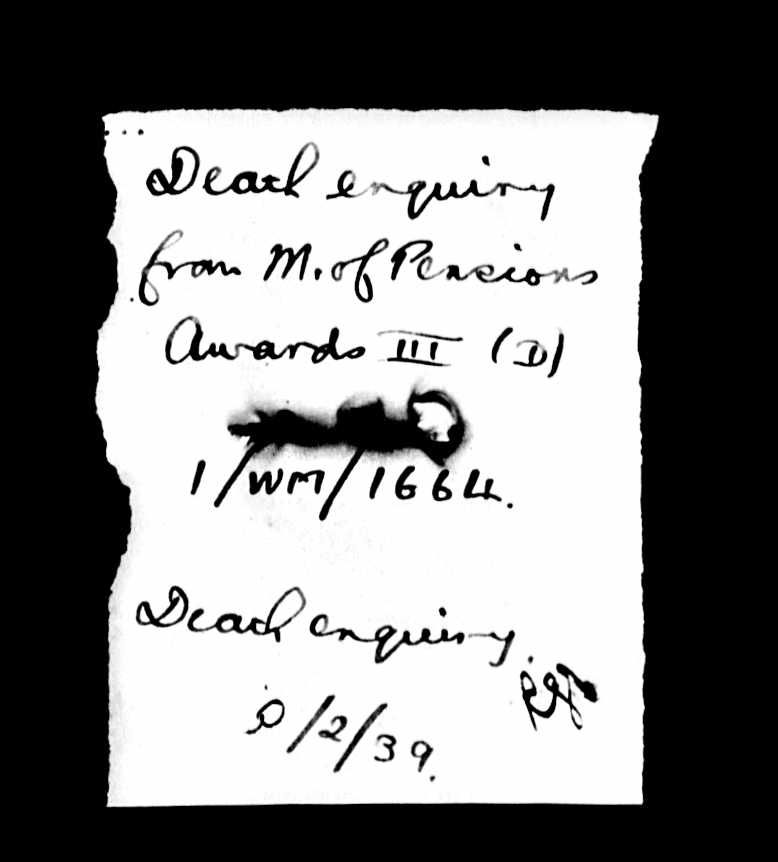 Death enquiry
from M. of Pensions
Awards III (D)
1/WM/1664.
Death enquiry.
/2/39.